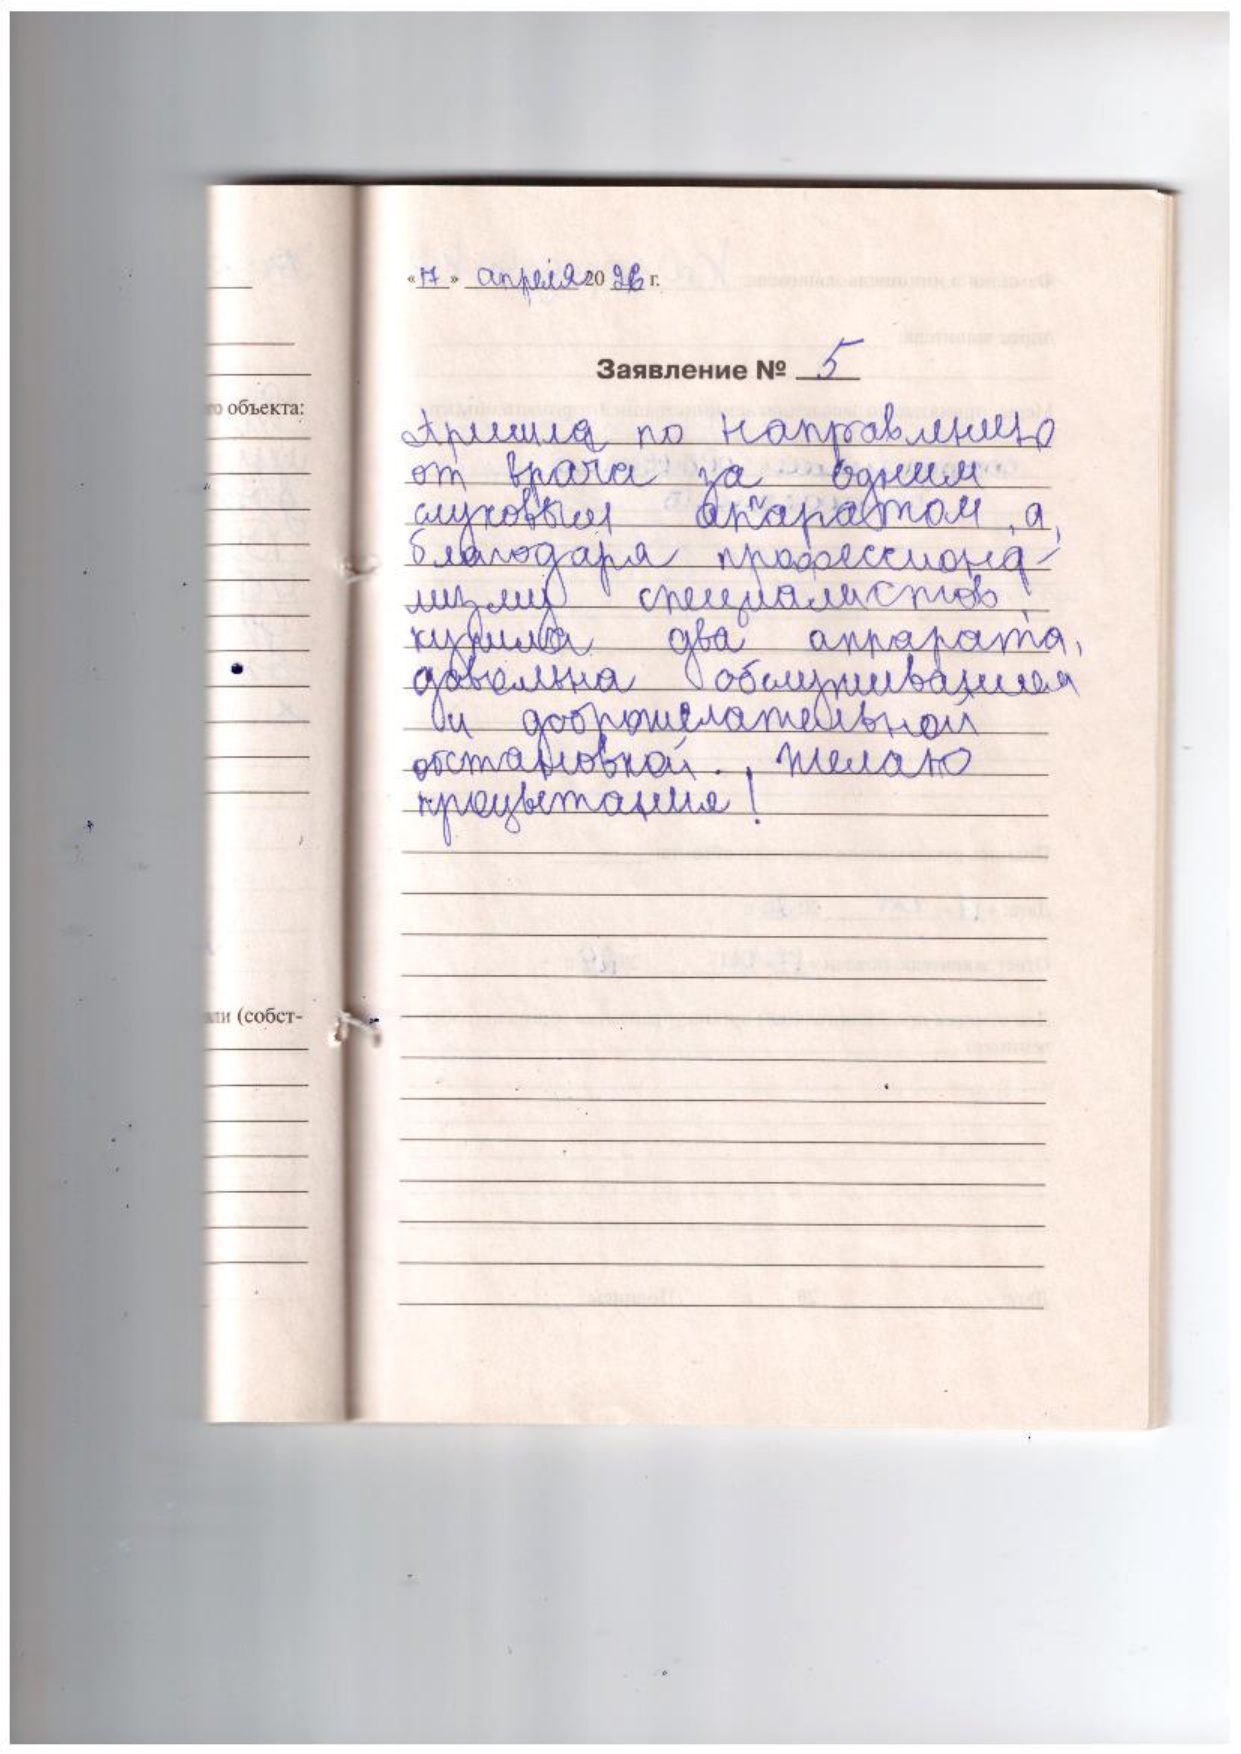 «17» апреля 2026 г.
Заявление № 5
го объекта:
Пришла по направлению
от врача за одним
слуховым аппаратом, а,
благодаря профессиона-
лизму специалистов,
купила два аппарата,
довольна обслуживанием
и доброжелательной
обстановкой. Желаю
процветания!
ли (собст-